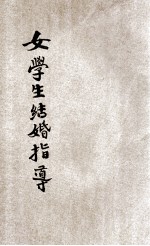 女學生結婚指導